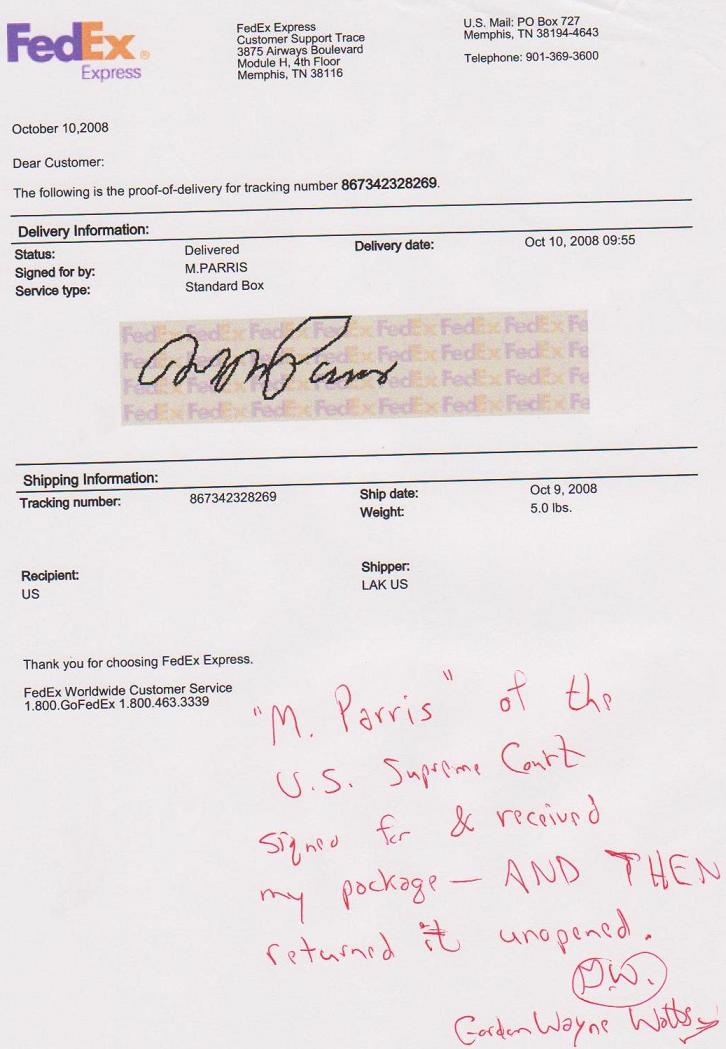 FedEx®
Express
FedEx Express
Customer Support Trace
3875 Airways Boulevard
Module H, 4th Floor
Memphis, TN 38116
U.S. Mail: PO Box 727
Memphis, TN 38194-4643
Telephone: 901-369-3600
October 10,2008
Dear Customer:
The following is the proof-of-delivery for tracking number 867342328269.
Delivery Information:
Status: Delivered Delivery date: Oct 10, 2008 09:55
Signed for by: M.PARRIS
Service type: Standard Box
FedEx FedEx FedEx FedEx FedEx FedEx FedEx Fe
FedEx FedEx FedEx FedEx FedEx FedEx FedEx Fe
FedEx FedEx FedEx FedEx FedEx FedEx FedEx Fe
FedEx FedEx FedEx FedEx FedEx FedEx FedEx Fe
Shipping Information:
Tracking number: 867342328269 Ship date: Oct 9, 2008
Weight: 5.0 lbs.
Recipient: Shipper:
US LAK US
Thank you for choosing FedEx Express.
FedEx Worldwide Customer Service
1.800.GoFedEx 1.800.463.3339
"M. Parris" of the
U.S. Supreme Court
signed for & received
my package — AND THEN
returned it unopened.
Gordon Wayne Watts